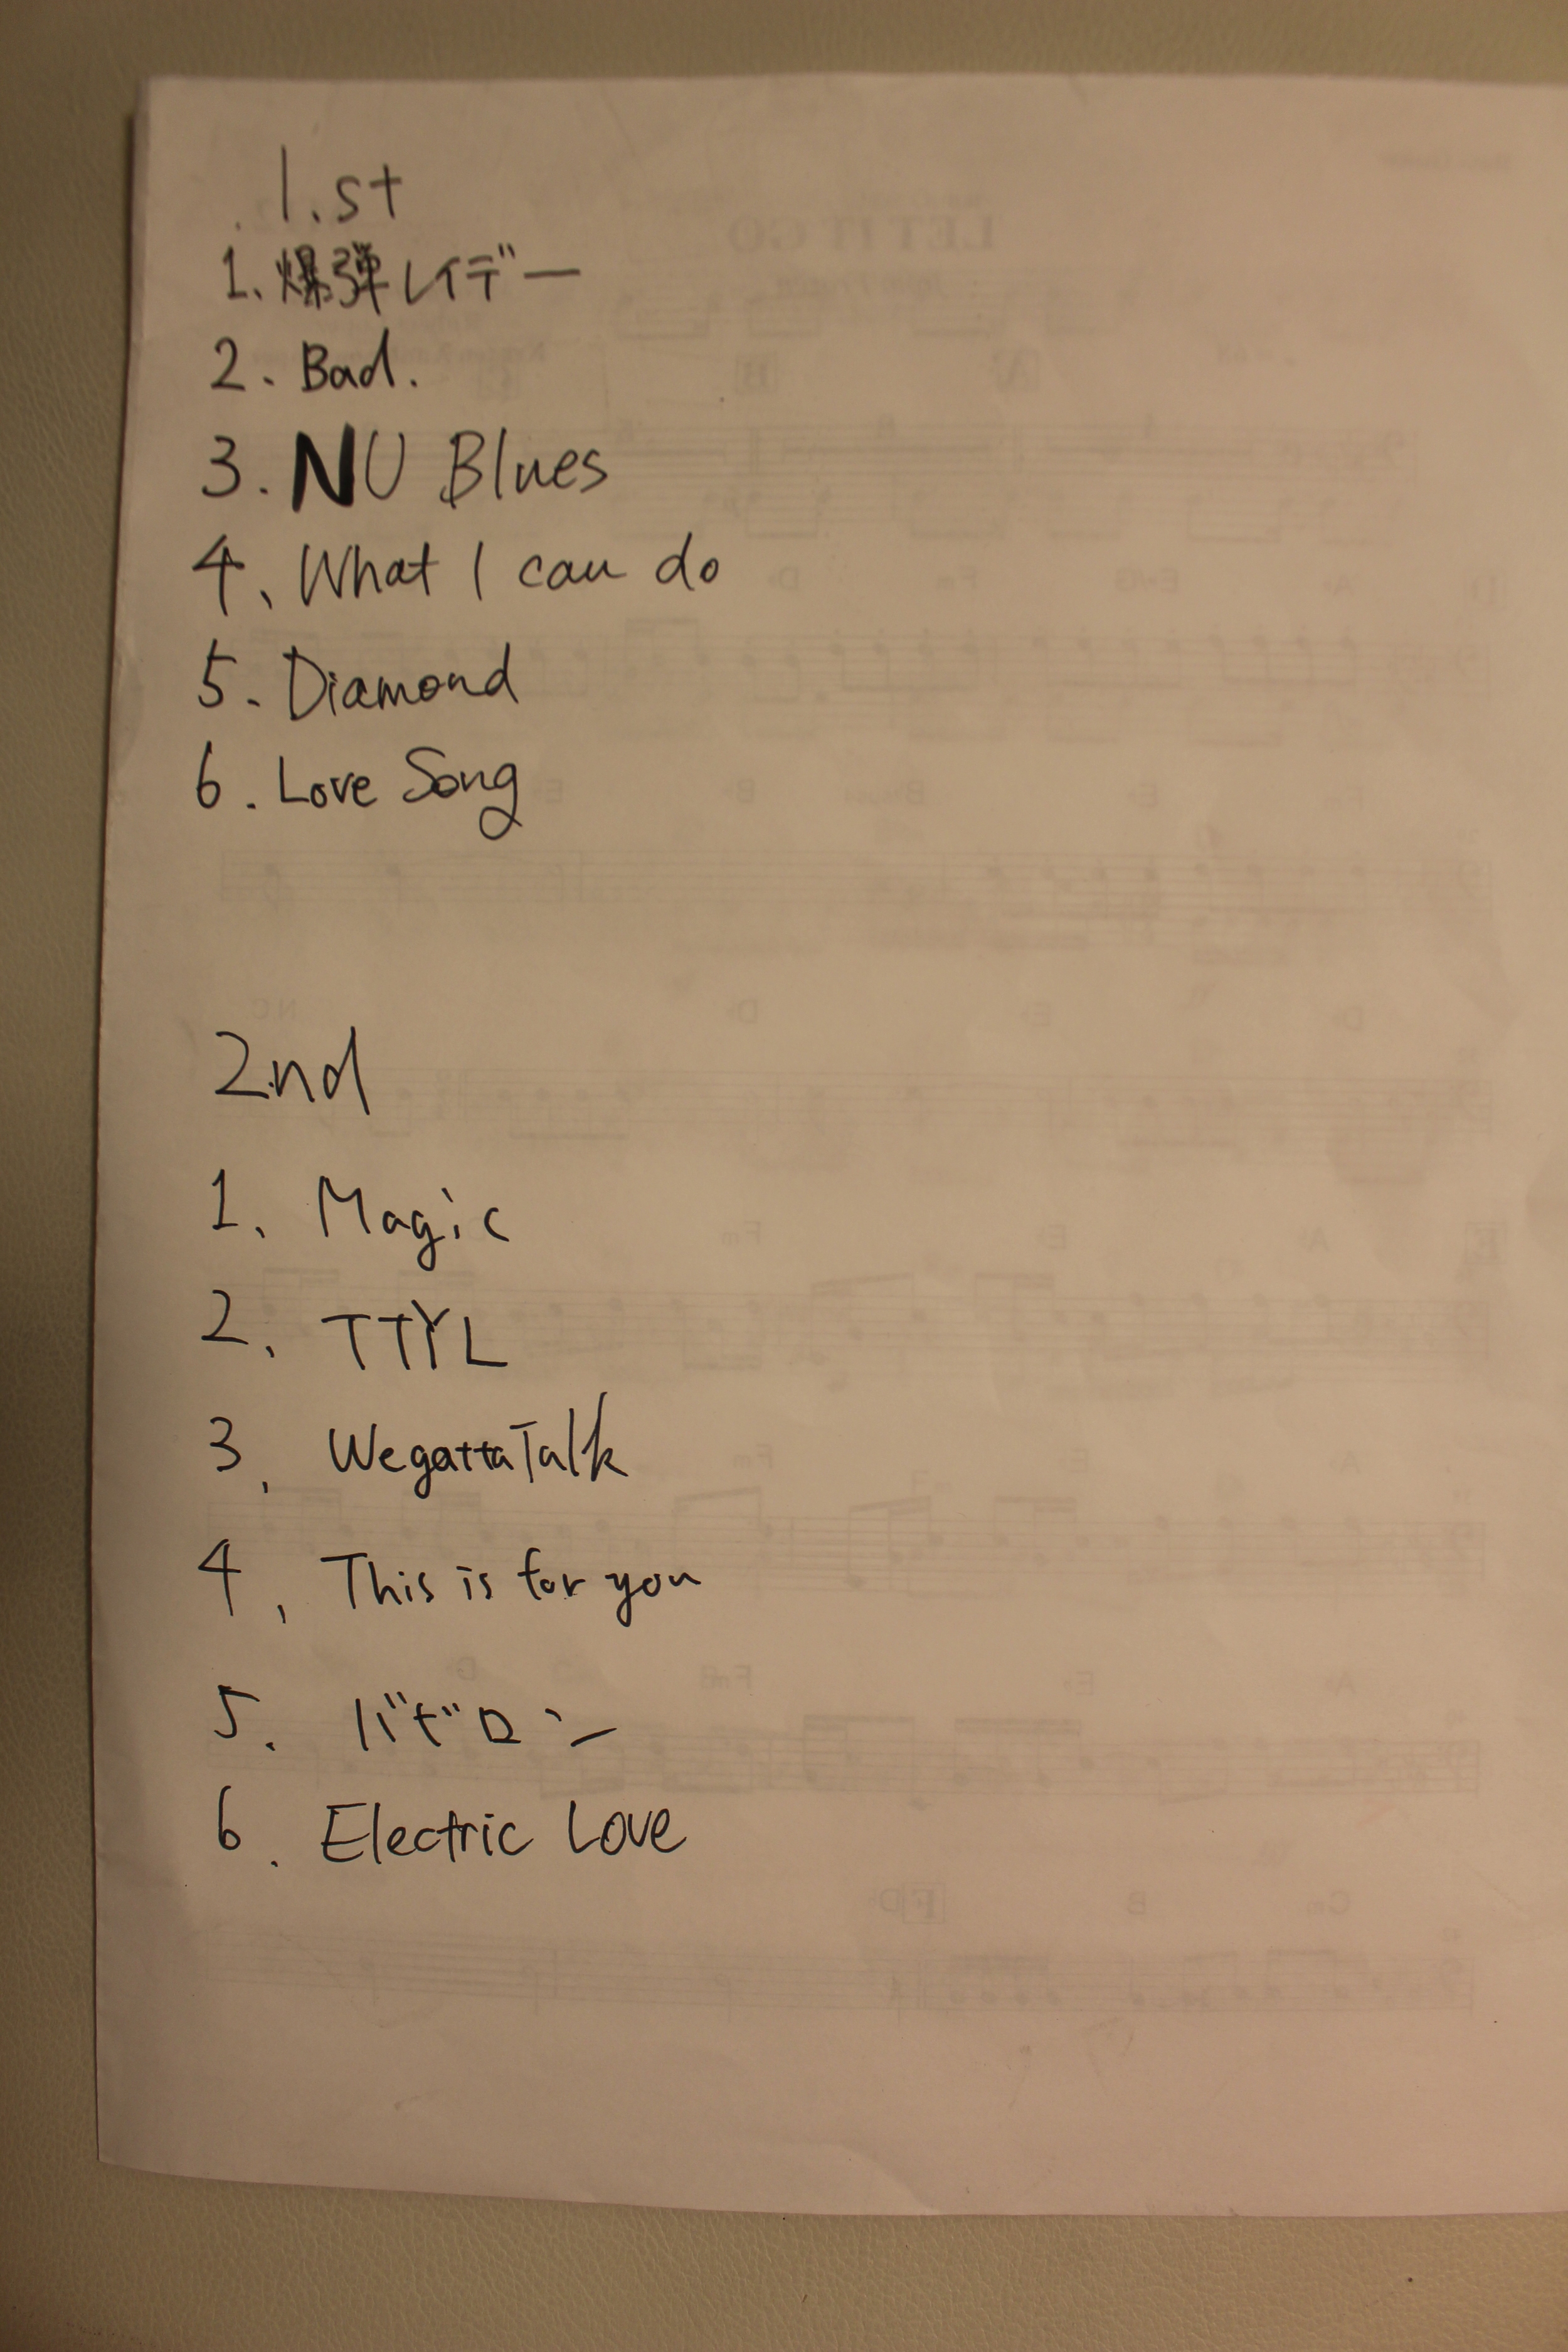 1.st
1、爆弾レイデー
2、Bad.
3. NU Blues
4、What I can do
5、Diamond
6. Love Song
2nd
1、Magic
2、TTYL
3、WegattaTalk
4、This is for you
5. バビロン
6. Electric Love
LET IT GO